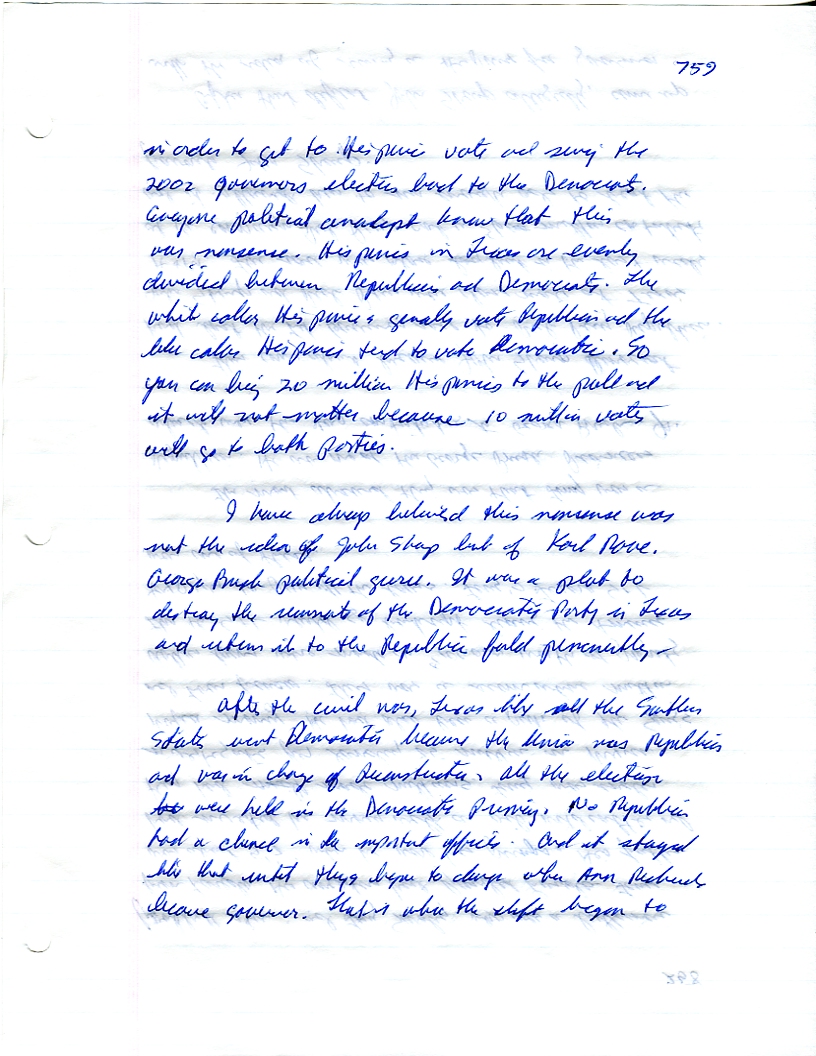 759
in order to get to Hispanic vote and swing the
2002 governors election back to the Democrats.
Everyone political analyst knew that this
was nonsense. Hispanics in Texas are evenly
divided between Republicans and Democrats. The
white collar Hispanics generally vote Republican and the
blue collar Hispanics tend to vote Democratic. So
you can bring 20 million Hispanics to the poll and
it will not matter because 10 million votes
will go to both parties.
I have always believed this nonsense was
not the idea of John Sharp but of Karl Rove.
George Bush political guru. It was a plot to
destroy the remnants of the Democratic Party in Texas
and return it to the Republic fold permanently
After the civil war, Texas like all the Southern
States went Democratic because the Union was Republican
and was in charge of Reconstruction. All the election
were held in the Democratic Primary. No Republican
had a chance in the important offices. And it stayed
like that until things began to change when Ann Richards
became governor. That is when the shift began to